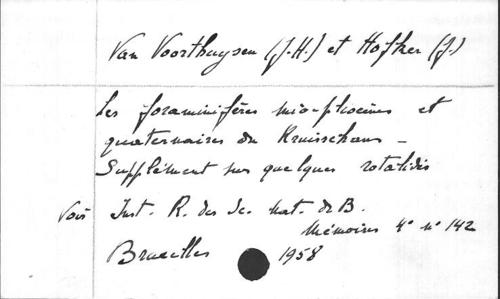 Van Voorthuysen (J.H.) et Hofker (J.)
Les foraminifères mio-pliocènes et
quaternaires du Kruisschans -
Supplément sur quelques rotalidés
Voir Inst. R. des Sc. nat. de B.
Mémoires 4° n° 142
Bruxelles 1958